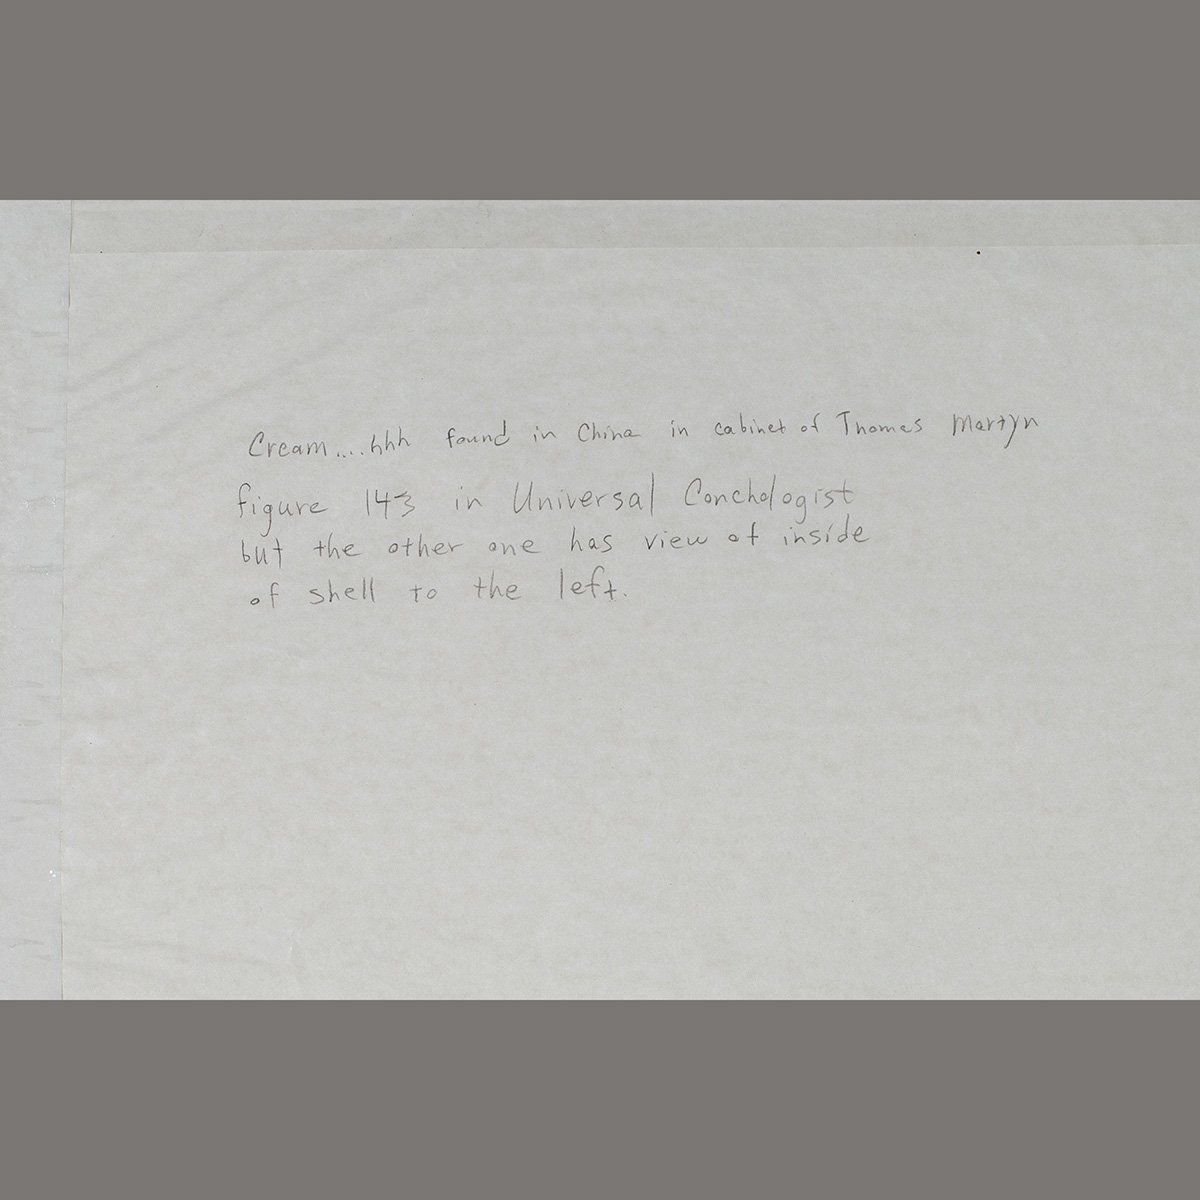 Cream....hhh found in China in cabinet of Thomas Martyn
figure 143 in Universal Conchologist
but the other one has view of inside
of shell to the left.